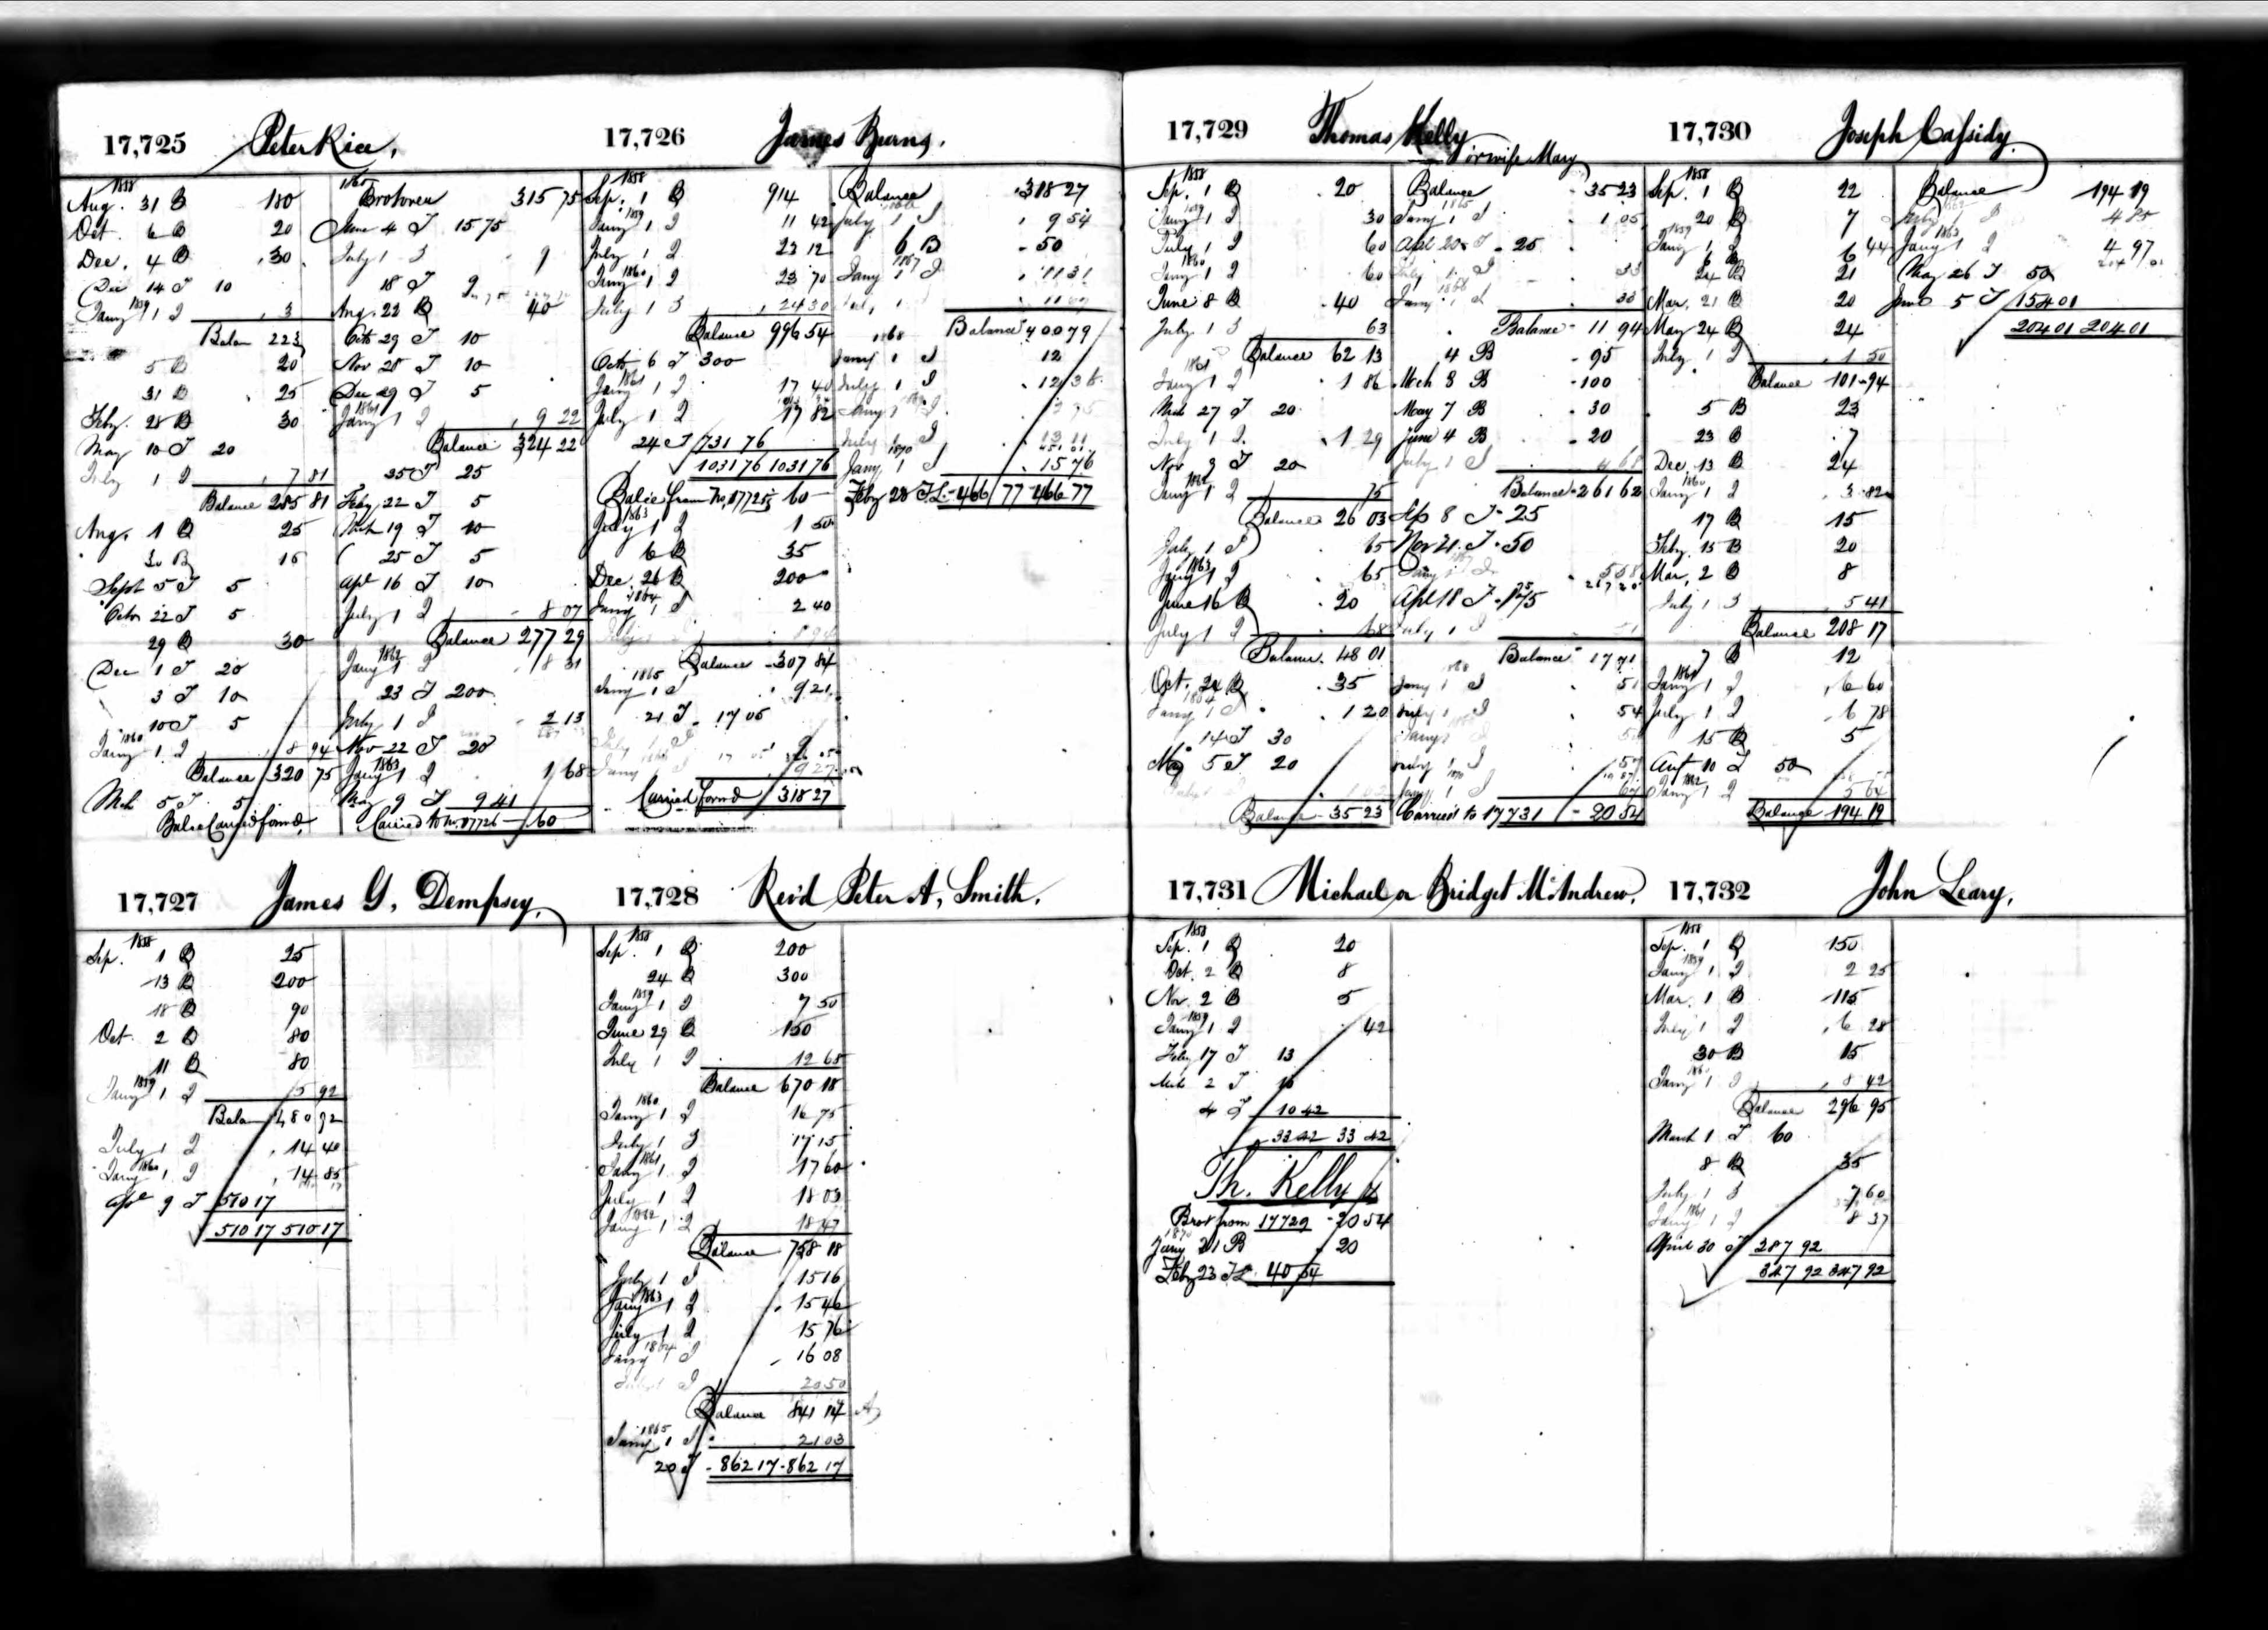 17,725 Peter Rice,
1858
Aug. 31 B 180
Oct. 6 B 20
Dec. 4 B 30
Dec 14 T 10
1859
Jany 1 I 3
Balan 223
5 B 20
31 B 25
Feby. 28 B 30
May 10 T 20
July 1 I 7 81
Balance 285 81
Aug. 1 B 25
30 B 15
Sept 5 T 5
Octo 22 T 5
29 B 30
Dec 1 T 20
3 T 10
10 T 5
1860
Jany 1 I 8 94
Balance 320 75
Mch 5 T 5
Balce Carried forwd,
Brot over 315 75
June 4 T 15 75
July 1 I 9
18 T
Aug. 22 B 40
Octo 29 T 10
Nov 28 T 10
Dec 29 T 5
1861
Jany 1 I 9 22
Balance 324 22
25 T 25
Feby 22 T 5
Mch 19 T 10
25 T 5
Apl 16 T 10
July 1 I 8 07
Balance 277 29
1862
Jany 1 I 8 31
23 T 200
July 1 I 2 13
Nov 22 T 20
1863
Jany 1 I 1 68
May 9 T 9 41
Carried to No. 17726 60
17,726 James Burns,
1858
Sep. 1 B 914
1859
Jany 1 I 11 42
July 1 I 23 12
1860
Jany 1 I 23 70
July 1 I 24 30
Balance 996 54
Octo 6 T 300
1861
Jany 1 I 17 40
July 1 I 17 82
24 T 731 76
1031 76 1031 76
Balce from No. 17725 60
1863
July 1 I 1 50
6 B 35
Dec. 26 B 200
1864
Jany 1 I 2 40
Balance 307 84
1865
Jany 1 I 9 21
21 T 17 05
Carried forwd 318 27
Balance 318 27
July 1 I 9 54
6 B 50
1867
Jany 1 I 11 31
Balance 400 79
1868
Jany 1 I 12
July 1 I 12 36
July 1 I 13 11
1870
Jany 1 I 15 76
Feby 28 T.L. 466 77 466 77
17,727 James G. Dempsey,
1858
Sep. 1 B 25
13 B 200
18 B 90
Oct. 2 B 80
11 B 80
1859
Jany 1 I 5 92
Balan 480 92
July 1 I 14 40
1860
Jany 1 I 14 85
Apl 9 T 510 17
510 17 510 17
17,728 Rev'd Peter A. Smith.
1858
Sep. 1 B 200
24 B 300
1859
Jany 1 I 7 50
June 29 B 150
July 1 I 12 68
Balance 670 18
1860
Jany 1 I 16 75
July 1 I 17 15
1861
Jany 1 I 17 60
July 1 I 18 03
1862
Jany 1 I 18 47
Balance 758 18
July 1 I 15 16
1863
Jany 1 I 15 46
July 1 I 15 76
1864
Jany 1 I 16 08
July 1 I 20 50
Balance 841 14
1865
Jany 1 I 21 03
20 T 862 17 862 17
17,729 Thomas Kelly or wife Mary
1858
Sep. 1 B 20
1859
Jany 1 I 30
July 1 I 60
1860
Jany 1 I 60
June 8 B 40
July 1 I 63
Balance 62 13
1861
Jany 1 I 1 86
Mch 27 T 20
July 1 I 1 29
Nov 9 T 20
1862
Jany 1 I 75
Balance 26 03
July 1 I 65
1863
Jany 1 I 65
June 16 B 20
July 1 I 68
Balance 48 01
Oct. 24 B 35
1864
Jany 1 I 1 20
14 T 30
5 T 20
Balance 35 23
Balance 35 23
1865
Jany 1 I 1 05
Apl 20 T 25
July 1 I 33
1866
Jany 1 I 33
Balance 11 94
4 B 95
Mch 8 B 100
May 7 B 30
June 4 B 20
July 1 I 4 68
Balance 261 62
Sep 8 T 25
Nov 21 T 50
Balance 17 71
1868
Jany 1 I 51
July 1 I 54
July 1 I 57
Carried to 17731 20 54
17,730 Joseph Cassidy.
1858
Sep. 1 B 22
20 B 7
1859
Jany 1 I 44
6 B 6
24 B 21
Mar. 21 B 20
May 24 B 24
July 1 I 1 50
Balance 101 94
5 B 23
23 B 7
Dec. 13 B 24
1860
Jany 1 I 3 82
17 B 15
Feby. 15 B 20
Mar. 2 B 8
July 1 I 5 41
Balance 208 17
7 B 12
1861
Jany 1 I 6 60
July 1 I 6 78
15 B 5
10 T 50
1862
Jany 1 I 5 64
Balance 194 19
Balance 194 19
July 1 I 4 85
1863
Jany 1 I 4 97
May 26 T 50
June 5 T 154 01
204 01 204 01
17,731 Michael or Bridget McAndrew.
1858
Sep. 1 B 20
Oct. 2 B 8
Nov. 2 B 5
1859
Jany 1 I 42
Feby 17 T 13
Mch 2 T 10
4 T 10 42
33 42 33 42
Th. Kelly
Brot from 17729 20 54
1870
Jany 21 B 20
Feby 23 T.L. 40 54
17,732 John Leary,
1858
Sep. 1 B 150
1859
Jany 1 I 2 25
Mar. 1 B 115
July 1 I 6 28
30 B 15
1860
Jany 1 I 8 42
Balance 296 95
March 1 T 60
8 B 35
July 1 I 7 60
1861
Jany 1 I 8 37
April 30 T 287 92
347 92 347 92